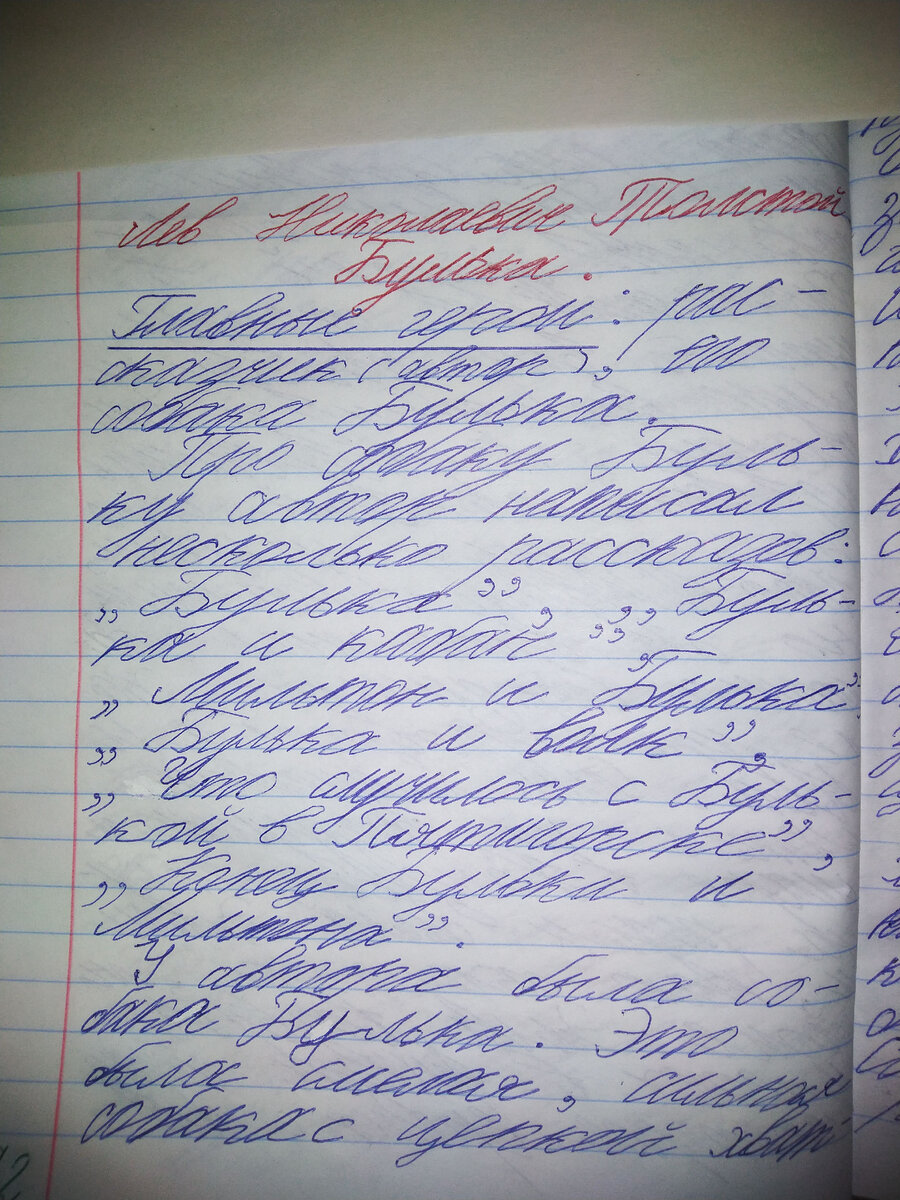 Лев Николаевич Толстой
Булька.
Главные герои: рас-
сказчик (автор), его
собака Булька.
Про собаку Буль-
ку автор написал
несколько рассказов:
„Булька”, „Буль-
ка и кабан”,
„Мильтон и Булька”,
„Булька и волк”,
„Что случилось с Буль-
кой в Пятигорске”,
„Конец Бульки и
Мильтона”.
У автора была со-
бака Булька. Это
была смелая, сильная
собака с цепкой хват